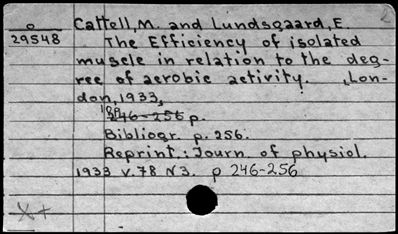 o Cattell, M. and Lundsgaard, E
29548 The Efficiency of isolated
muscle in relation to the deg-
ree of aerobic activity. Lon-
don, 1933,
246-256 p.
Bibliogr. p. 256.
Reprint.: Journ. of physiol.
1933 v.78 N3. p 246-256
X+